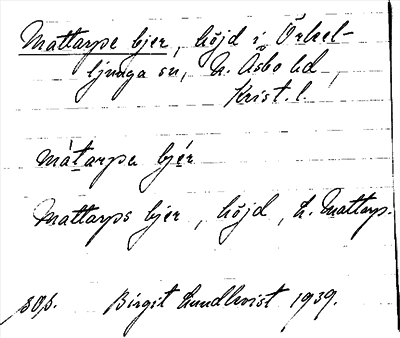 Mattarps bjer, höjd i Örkel-
ljunga sn, N. Åsbo hd,
Krist. l.
mátarpa bjér
Mattarps bjer, höjd, h. Mattarp.
Birgit Lundkvist 1939.